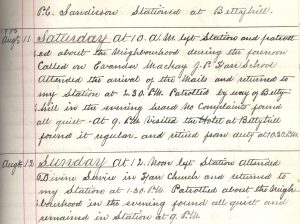 P.C. Sandieson Stationed at Bettyhill.
Augt. 11 Saturday at 10 A.M. left Station and patroll
ed about the Neighbourhood during the forenoon
Called on Evander Mackay J.P. Farr School
Attended the arrival of the Mails and returned to
my Station at 2.30 P.M. Patrolled by way of Betty-
hill in the evening heard No Complaints found
all quiet - At 9 P.M. Visited the Hotel at Bettyhill
found it regular. and retired from duty at 10.30 P.M.
Augt. 12 Sunday at 12. Noon left Station attended
Divine Service in Farr Church and returned to
my Station at 1.30 P.M. Patrolled about the Neigh-
bourhood in the evening found all quiet and
remained in Station at 9. P.M.